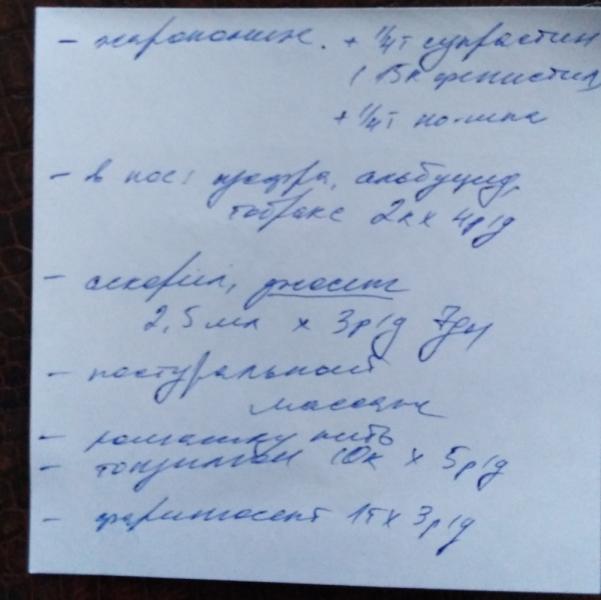 - жаропониж. + 1/4т супрастин
( 15к фенистил
+ 1/4т но-шпа
- в нос: альбуцид,
тобрекс 2к х 4р/д
- аскорил, джосет
2,5 мл х 3р/д 7дн
- постуральный
массаж
- ромашку пить
- тонзилгон 10к х 5р/д
- фарингосепт 1т х 3р/д